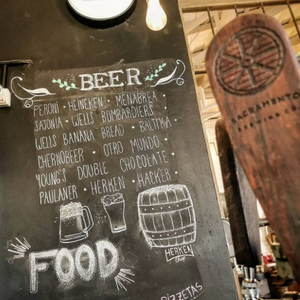 BEER
PERONI • HEINEKEN • MENABREA •
SAJONIA • WELLS BOMBARDIERS •
WELLS BANANA BREAD • BALTYKA •
CHERNOBEER • OTRO MUNDO •
YOUNG'S DOUBLE CHOCOLATE •
PAULANER • HERKEN HACKER •
HERKEN
FOOD
PIZZETAS
SACRAMENTO
BREWING CO.